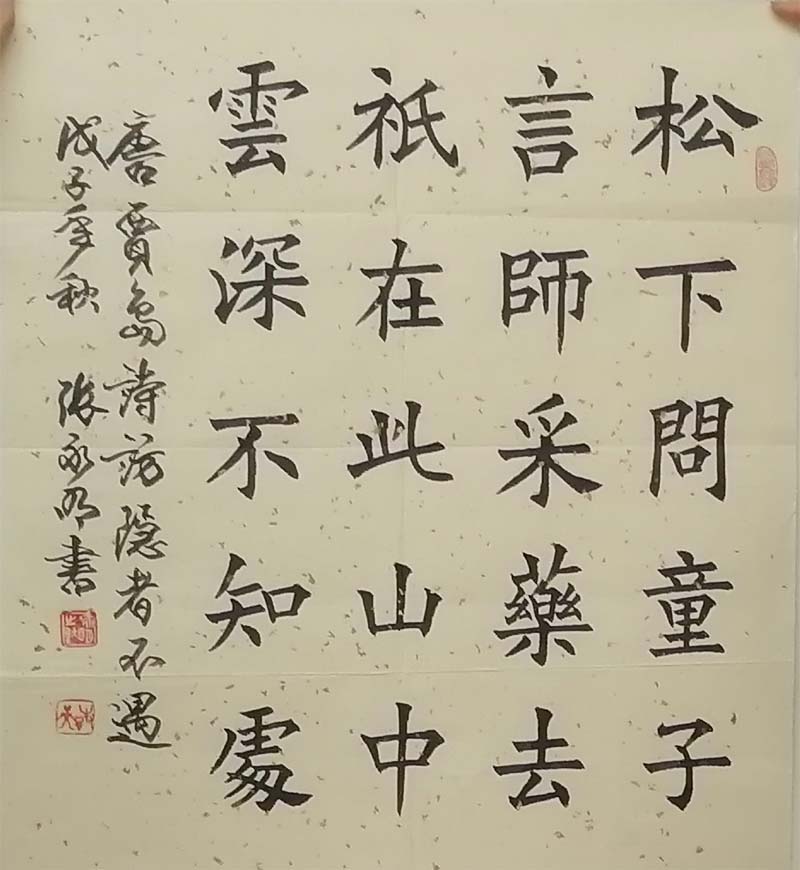 松下問童子
言師采藥去
祇在此山中
雲深不知處
唐賈島詩訪隱者不遇
戊子季秋 張永明書